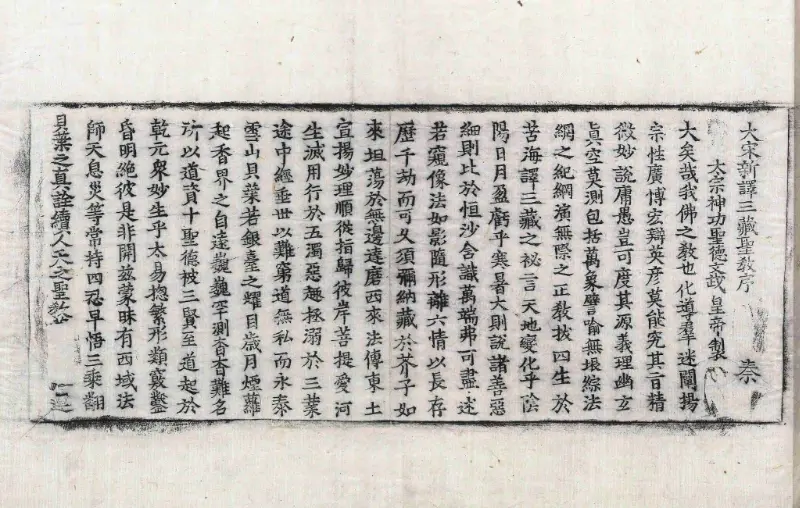 大宋新譯三藏聖教序 秦
太宗神功聖德文武皇帝製
大矣哉我佛之教也化導羣迷闡揚
宗性廣博宏辯英彦莫能究其旨精
微妙說庸愚豈可度其源義理幽玄
眞空莫測包括萬象譬喻無垠綜法
網之紀綱演無際之正教拔四生於
苦海譯三藏之祕言天地變化乎陰
陽日月盈虧乎寒暑大則說諸善惡
細則比於恒沙含識萬端弗可盡述
若窺像法如影隨形離六情以長存
歷千劫而可久須彌納藏於芥子如
來坦蕩於無邊達磨西來法傳東土
宣揚妙理順從指歸彼岸菩提愛河
生滅用行於五濁惡趣拯溺於三業
途中經垂世以難窮道無私而永泰
雪山貝葉若銀臺之耀目歲月煙蘿
起香界之自遠巍巍罕測杳杳難名
所以道資十聖德被三賢至道起於
乾元衆妙生乎太易揔繁形類竅鑿
昏明絕彼是非開茲蒙昧有西域法
師天息災等常持四忍早悟三乘翻
貝葉之真詮續人天之聖教